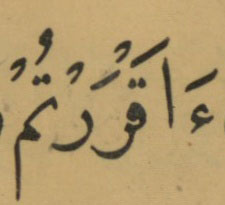 ءَاَقْرَرْتُمْ